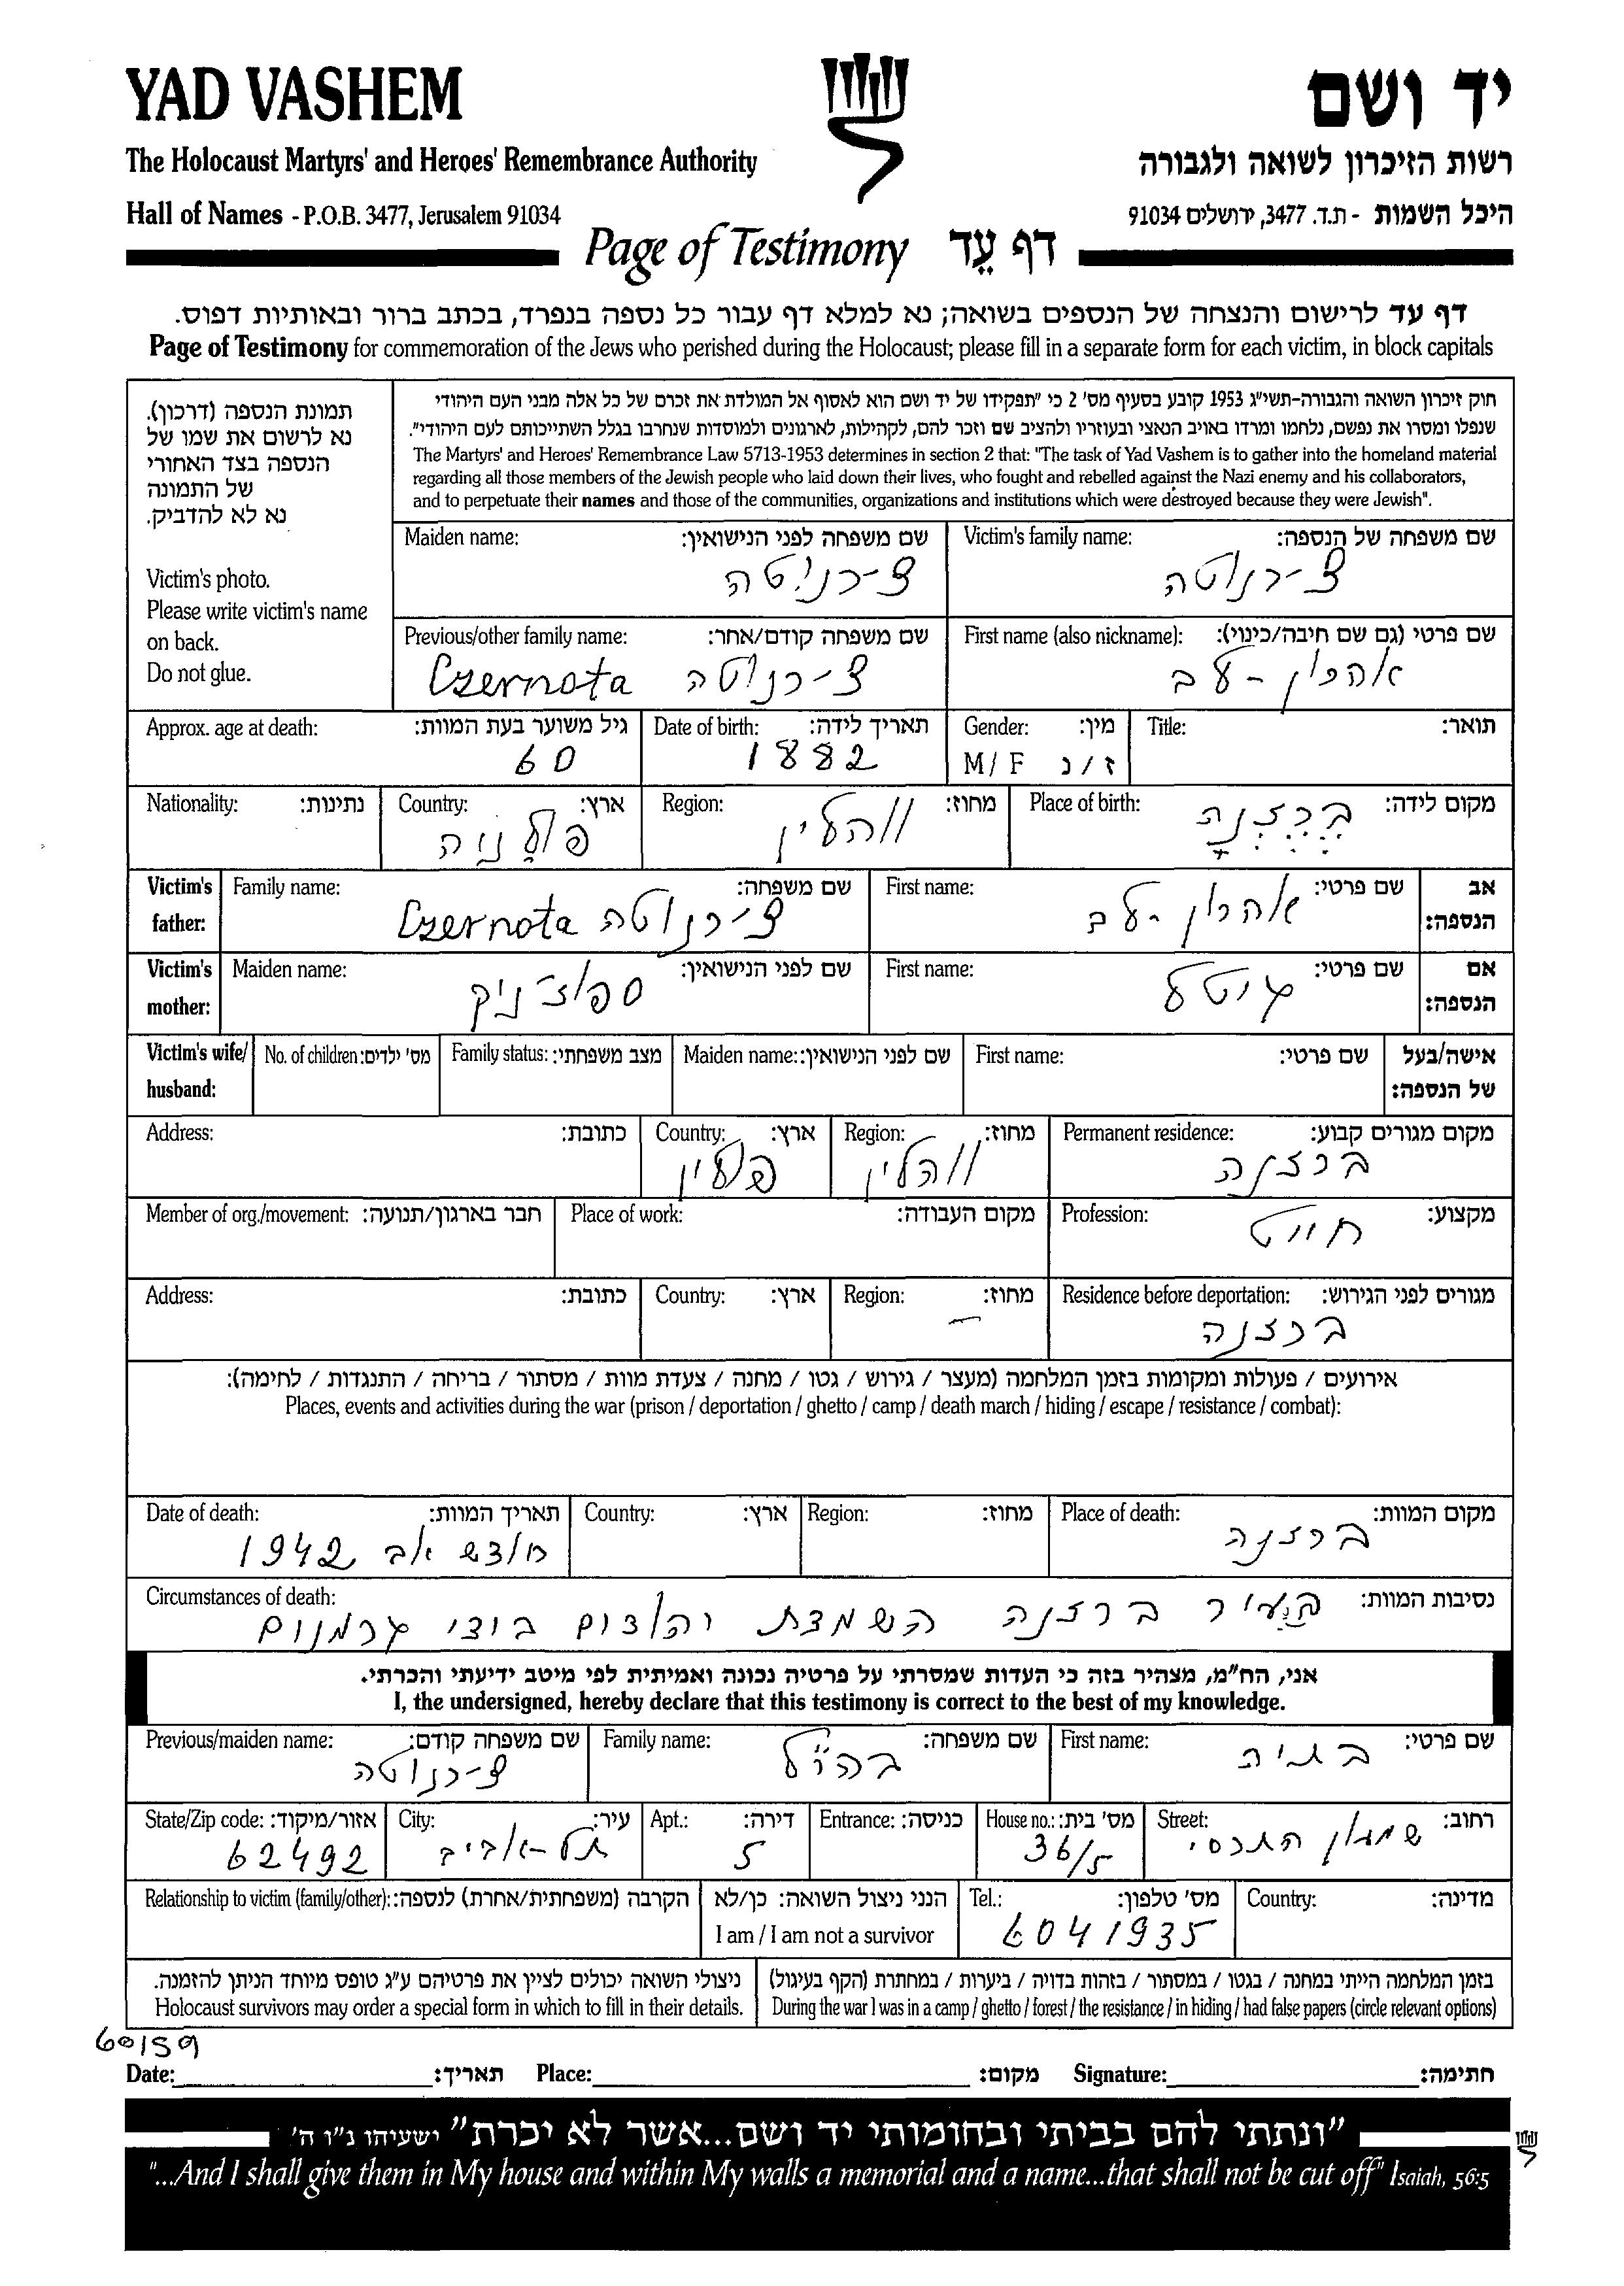 YAD VASHEM
יד ושם
The Holocaust Martyrs' and Heroes' Remembrance Authority
רשות הזיכרון לשואה ולגבורה
Hall of Names - P.O.B. 3477, Jerusalem 91034
היכל השמות - ת.ד. 3477, ירושלים 91034
Page of Testimony דף עֵד
דף עד לרישום והנצחה של הנספים בשואה; נא למלא דף עבור כל נספה בנפרד, בכתב ברור ובאותיות דפוס.
Page of Testimony for commemoration of the Jews who perished during the Holocaust; please fill in a separate form for each victim, in block capitals
תמונת הנספה (דרכון).
נא לרשום את שמו של
הנספה בצד האחורי
של התמונה
נא לא להדביק.
Victim's photo.
Please write victim's name
on back.
Do not glue.
חוק זיכרון השואה והגבורה-תשי"ג 1953 קובע בסעיף מס' 2 כי "תפקידו של יד ושם הוא לאסוף אל המולדת את זכרם של כל אלה מבני העם היהודי
שנפלו ומסרו את נפשם, נלחמו ומרדו באויב הנאצי ובעוזריו ולהציב שם וזכר להם, לקהילות, לארגונים ולמוסדות שנחרבו בגלל השתייכותם לעם היהודי".
The Martyrs' and Heroes' Remembrance Law 5713-1953 determines in section 2 that: "The task of Yad Vashem is to gather into the homeland material
regarding all those members of the Jewish people who laid down their lives, who fought and rebelled against the Nazi enemy and his collaborators,
and to perpetuate their names and those of the communities, organizations and institutions which were destroyed because they were Jewish".
Victim's family name: שם משפחה של הנספה:
צ'רנוטה
Maiden name: שם משפחה לפני הנישואין:
צ'רניטה
First name (also nickname): שם פרטי (גם שם חיבה/כינוי):
אהרון-לב
Previous/other family name: שם משפחה קודם/אחר:
Czernota צ'רנוטה
Title: תואר:
Gender: מין:
M / F ז / נ
Date of birth: תאריך לידה:
1882
Approx. age at death: גיל משוער בעת המוות:
60
Place of birth: מקום לידה:
ברזנה
Region: מחוז:
ווהלין
Country: ארץ:
פולניה
Nationality: נתינות:
Victim's father: אב הנספה:
First name: שם פרטי:
אהרון-לב
Family name: שם משפחה:
Czernota צ'רנוטה
Victim's mother: אם הנספה:
First name: שם פרטי:
גיטל
Maiden name: שם לפני הנישואין:
Victim's wife/ husband: אישה/בעל של הנספה:
First name: שם פרטי:
Maiden name: שם לפני הנישואין:
Family status: מצב משפחתי:
No. of children: מס' ילדים:
Permanent residence: מקום מגורים קבוע:
ברזנה
Region: מחוז:
ווהלין
Country: ארץ:
פולין
Address: כתובת:
Profession: מקצוע:
חייט
Place of work: מקום העבודה:
Member of org./movement: חבר בארגון/תנועה:
Residence before deportation: מגורים לפני הגירוש:
ברזנה
Region: מחוז:
Country: ארץ:
Address: כתובת:
אירועים / פעולות ומקומות בזמן המלחמה (מעצר / גירוש / גטו / מחנה / צעדת מוות / מסתור / בריחה / התנגדות / לחימה):
Places, events and activities during the war (prison / deportation / ghetto / camp / death march / hiding / escape / resistance / combat):
Place of death: מקום המוות:
ברזנה
Region: מחוז:
Country: ארץ:
Date of death: תאריך המוות:
חודש אב 1942
Circumstances of death: נסיבות המוות:
בעיר ברזנה השמדת גרמנים
אני, הח"מ, מצהיר בזה כי העדות שמסרתי על פרטיה נכונה ואמיתית לפי מיטב ידיעתי והכרתי.
I, the undersigned, hereby declare that this testimony is correct to the best of my knowledge.
First name: שם פרטי:
בתיה
Family name: שם משפחה:
Previous/maiden name: שם משפחה קודם:
צ'רנוטה
Street: רחוב:
שמעון התרסי
House no.: מס' בית:
36/5
Entrance: כניסה:
Apt.: דירה:
5
City: עיר:
תל-אביב
State/Zip code: אזור/מיקוד:
62492
Country: מדינה:
Tel.: מס' טלפון:
6041935
הנני ניצול השואה: כן/לא
I am / I am not a survivor
Relationship to victim (family/other): הקרבה (משפחתית/אחרת) לנספה:
בזמן המלחמה הייתי במחנה / בגטו / במסתור / בזהות בדויה / ביערות / במחתרת (הקף בעיגול)
During the war I was in a camp / ghetto / forest / the resistance / in hiding / had false papers (circle relevant options)
ניצולי השואה יכולים לציין את פרטיהם ע"ג טופס מיוחד הניתן להזמנה.
Holocaust survivors may order a special form in which to fill in their details.
60159
Date: תאריך: Place: מקום: Signature: חתימה:
"ונתתי להם בביתי ובחומותי יד ושם...אשר לא יכרת" ישעיהו נ"ו ה'
"...And I shall give them in My house and within My walls a memorial and a name...that shall not be cut off" Isaiah, 56:5